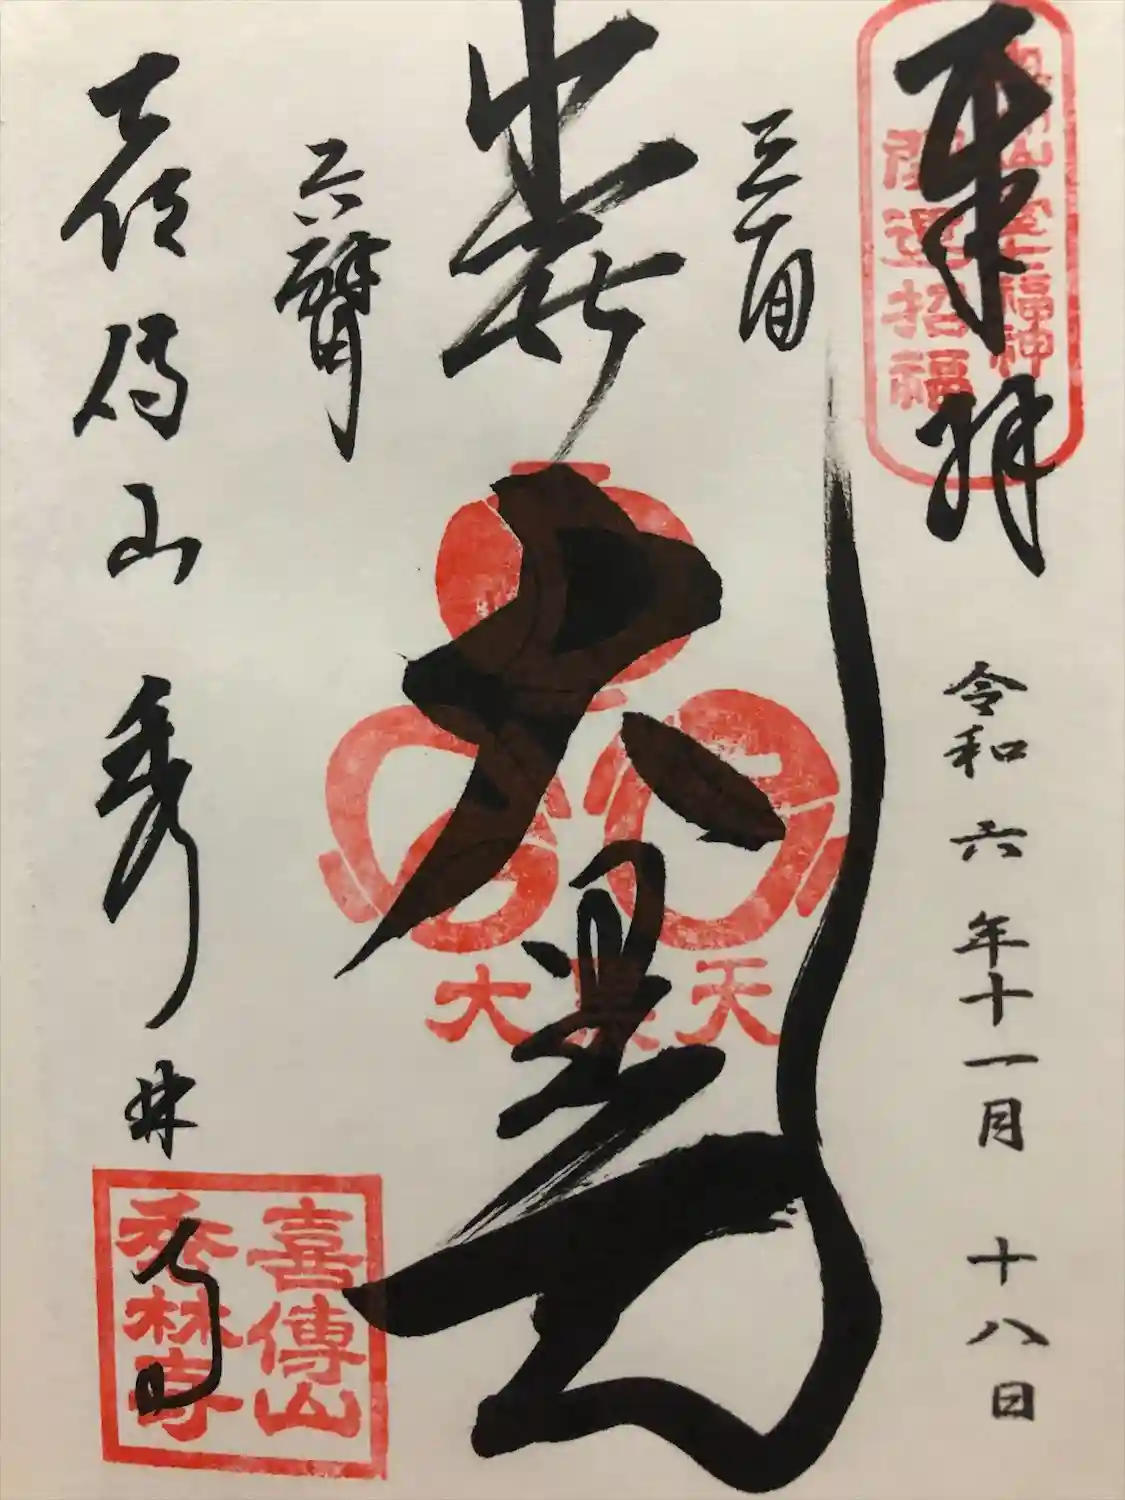 奉拝
開運招福
七福神
令和六年十一月十八日
三面
出世大黒天
六臂
大黒天
喜傳山 秀林寺
喜傳山
秀林寺